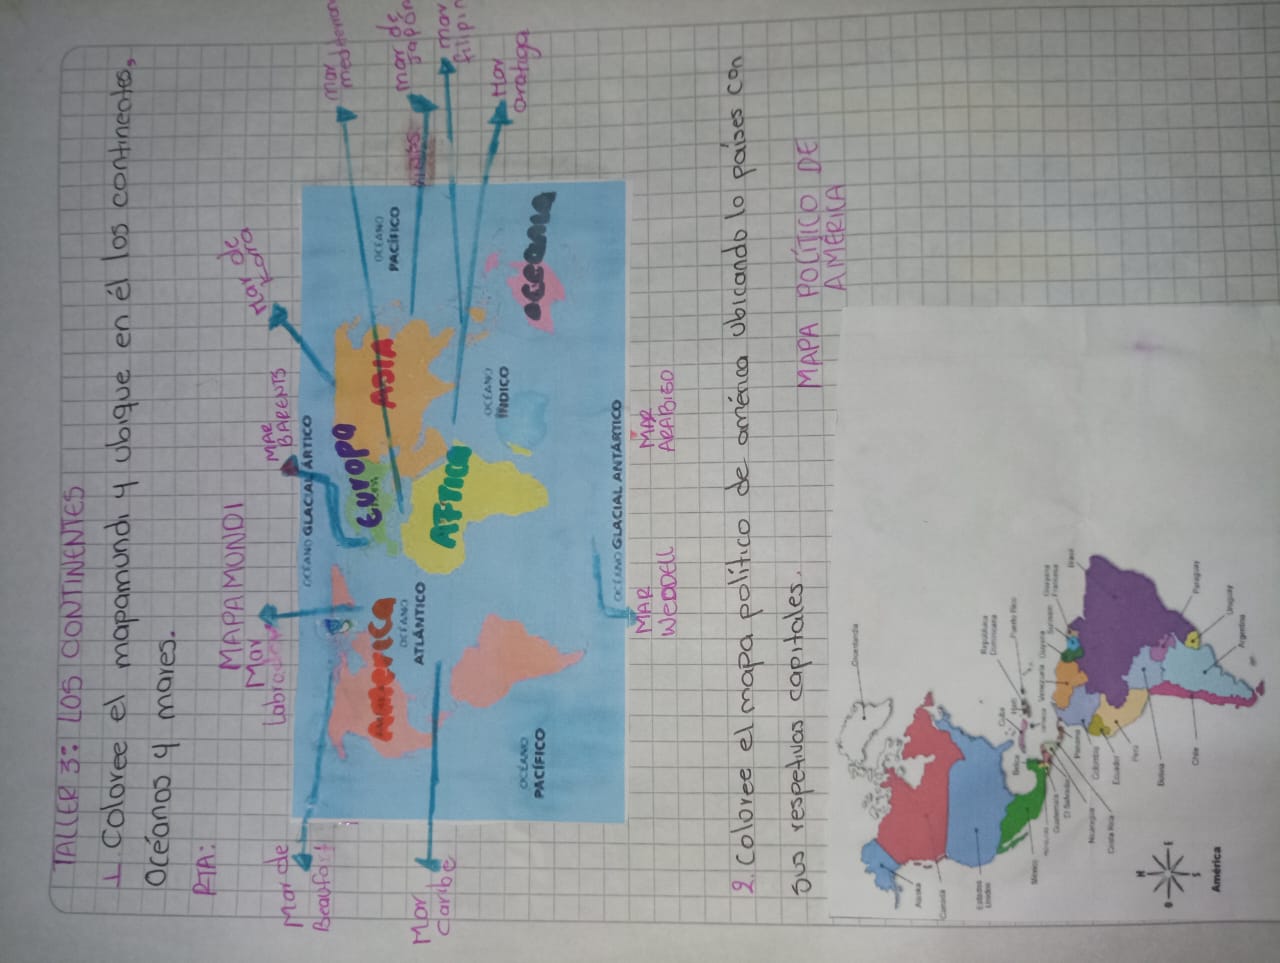 TALLER 3: LOS CONTINENTES
1. Coloree el mapamundi y ubique en el los continentes,
Océanos y mares.
RTA:
MAPAMUNDI
Mar de
Beaufort
Mar
Labrador
MAR
BARENTS
Mar de
Kara
Mar
mediterran
mar de
Japón
mar
filipin
Mar
arafiga
OCÉANO GLACIAL ÁRTICO
EUROPA
ASIA
América
AFTICA
OCEANIA
OCÉANO
PACÍFICO
OCÉANO
ATLÁNTICO
OCÉANO
ÍNDICO
OCÉANO
PACÍFICO
OCÉANO GLACIAL ANTÁRTICO
Mar
caribe
MAR
WEDDELL
MAR
ARABIGO
2. Coloree el mapa político de américa ubicando lo países con
sus respetivas capitales.
MAPA POLÍTICO DE
AMÉRICA
Groenlandia
Alaska
Canadá
Estados
Unidos
México
Belice
Cuba
Haití
República
Dominicana
Puerto Rico
Guatemala
El Salvador
Nicaragua
Costa Rica
Panamá
Venezuela
Guyana
Surinam
Guayana
Francesa
Brasil
Colombia
Ecuador
Perú
Bolivia
Chile
Paraguay
Uruguay
Argentina
N
O
E
S
América